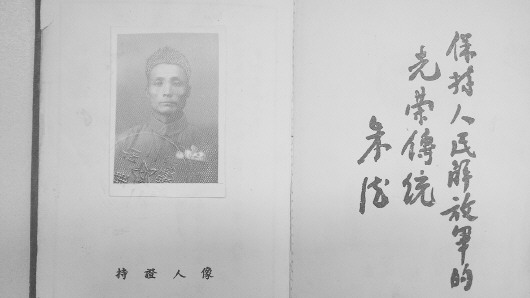 保持人民解放軍的
光荣傳統
朱德
像人證持